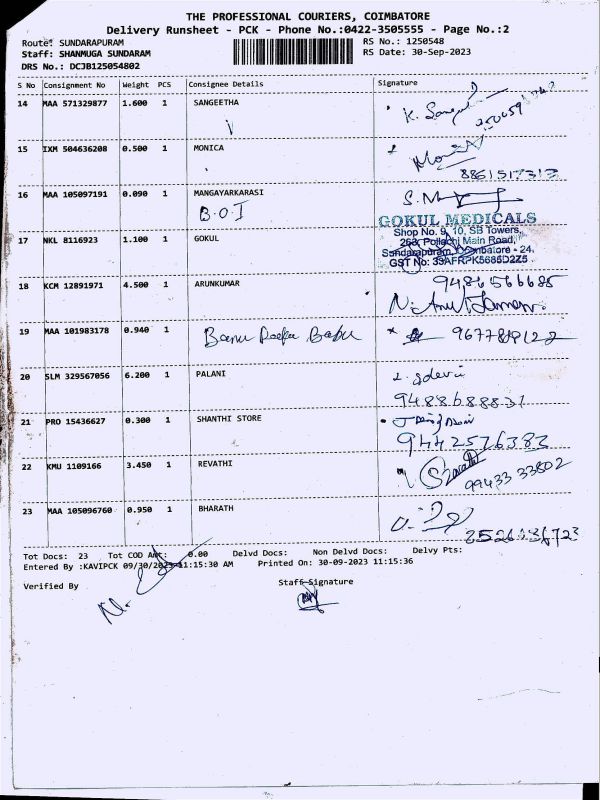 THE PROFESSIONAL COURIERS, COIMBATORE
Delivery Runsheet - PCK - Phone No.:0422-3505555 - Page No.:2
Route: SUNDARAPURAM RS No.: 1250548
Staff: SHANMUGA SUNDARAM RS Date: 30-Sep-2023
DRS No.: DCJB125054802
S No Consignment No Weight PCS Consignee Details Signature
14 MAA 571329877 1.600 1 SANGEETHA
K. Sangee
15 IXM 504636208 0.500 1 MONICA
8861517313
16 MAA 105097191 0.090 1 MANGAYARKARASI
B.O.I S.M
GOKUL MEDICALS
17 NKL 8116923 1.100 1 GOKUL Shop No. 9, 10, SB Towers,
268, Pollachi Main Road,
Sundarapuram, Coimbatore - 24.
GST No: 33AFRPK5685D2Z5
18 KCM 12891971 4.500 1 ARUNKUMAR 9486566685
19 MAA 101983178 0.940 1 Banu Deepa Babu
20 SLM 329567056 6.200 1 PALANI
9488688831
21 PRO 15436627 0.300 1 SHANTHI STORE
9442576383
22 KMU 1109166 3.450 1 REVATHI
99433 33802
23 MAA 105096760 0.950 1 BHARATH
Tot Docs: 23 Tot COD Amt: 0.00 Delvd Docs: Non Delvd Docs: Delvy Pts:
Entered By :KAVIPCK 09/30/2023 11:15:30 AM Printed On: 30-09-2023 11:15:36
Verified By Staff Signature